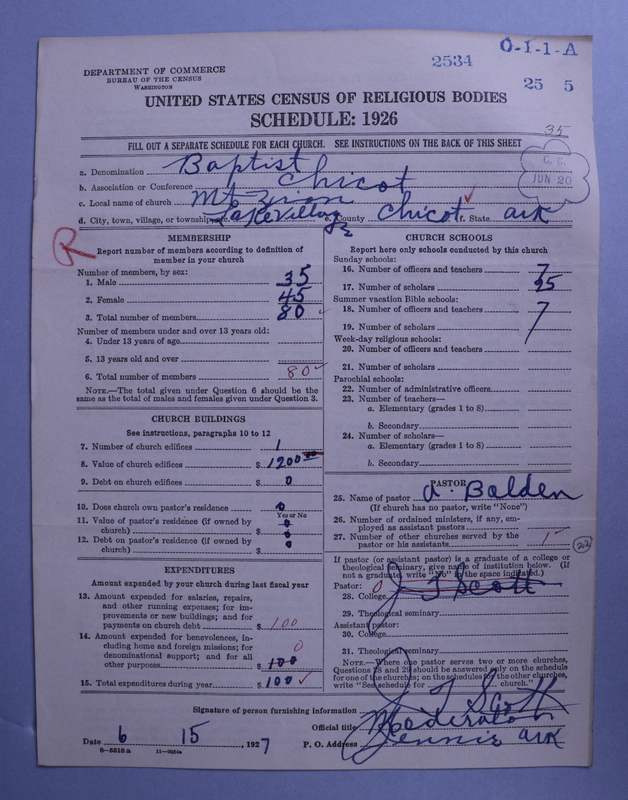 2534
O-I-1-A
25 5
DEPARTMENT OF COMMERCE
BUREAU OF THE CENSUS
WASHINGTON
UNITED STATES CENSUS OF RELIGIOUS BODIES
SCHEDULE: 1926
35
FILL OUT A SEPARATE SCHEDULE FOR EACH CHURCH. SEE INSTRUCTIONS ON THE BACK OF THIS SHEET
C. C.
JUN 20
a. Denomination Baptist
b. Association or Conference Chicot
c. Local name of church Mt Zion
d. City, town, village, or township Lake Village e. County Chicot f. State Ark
R
MEMBERSHIP
Report number of members according to definition of
member in your church
Number of members, by sex:
1. Male 35
2. Female 45
3. Total number of members 80
Number of members under and over 13 years old:
4. Under 13 years of age
5. 13 years old and over
6. Total number of members 80
NOTE.—The total given under Question 6 should be the
same as the total of males and females given under Question 3.
CHURCH BUILDINGS
See instructions, paragraphs 10 to 12
7. Number of church edifices 1
8. Value of church edifices $ 1200 00
9. Debt on church edifices $ 0
10. Does church own pastor's residence 0
Yes or No
11. Value of pastor's residence (if owned by
church) $ 0
12. Debt on pastor's residence (if owned by
church) $ 0
EXPENDITURES
Amount expended by your church during last fiscal year
13. Amount expended for salaries, repairs,
and other running expenses; for im-
provements or new buildings; and for
payments on church debt $ 100
14. Amount expended for benevolences, in-
cluding home and foreign missions; for
denominational support; and for all
other purposes $ 100 0
15. Total expenditures during year $ 100
CHURCH SCHOOLS
Report here only schools conducted by this church
Sunday schools:
16. Number of officers and teachers 7
17. Number of scholars 25
Summer vacation Bible schools:
18. Number of officers and teachers 7
19. Number of scholars
Week-day religious schools:
20. Number of officers and teachers
21. Number of scholars
Parochial schools:
22. Number of administrative officers
23. Number of teachers—
a. Elementary (grades 1 to 8)
b. Secondary
24. Number of scholars—
a. Elementary (grades 1 to 8)
b. Secondary
PASTOR
25. Name of pastor A. Balden
(If church has no pastor, write "None")
26. Number of ordained ministers, if any, em-
ployed as assistant pastors
27. Number of other churches served by the
pastor or his assistants 1
If pastor (or assistant pastor) is a graduate of a college or
theological seminary, give name of institution below. (If
not a graduate, write "No" in the space indicated.)
Pastor: 0
28. College J T Scott
29. Theological seminary
Assistant pastor:
30. College
31. Theological seminary
NOTE.—Where one pastor serves two or more churches,
Questions 28 and 29 should be answered only on the schedule
for one of the churches; on the schedules for the other churches,
write "See schedule for church."
Signature of person furnishing information J T Scott
Official title Moderator
Date 6 15, 1927 P. O. Address Jennie Ark
8-5318a 11-9264a